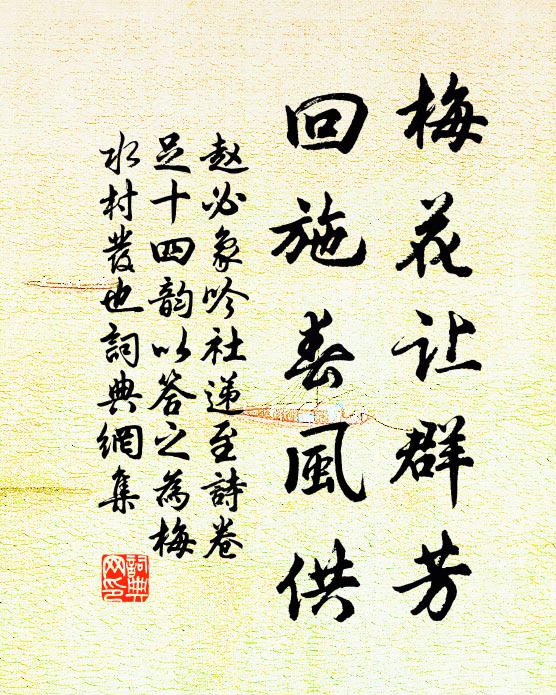 梅花让群芳
回施春風供
赵必象吟社递至詩卷
足十四韵以答之為梅
水村发也詞典網集
詞典
网印